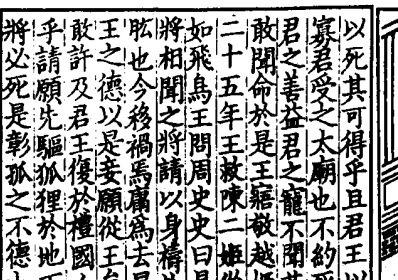 以死其可得乎且君王以
寡君受之太廟也不約
君之善益君之寵不聞其
敢聞命於是王寤敬越姬
二十五年王救陳二姬從
如飛鳥王問周史史曰是
將相聞之將請以身禱
肱也今移禍焉庸爲去是
王之德以是妾願從王
敢許及君王復於禮國
乎請願先驅狐狸於地
將必死是彰孤之不德